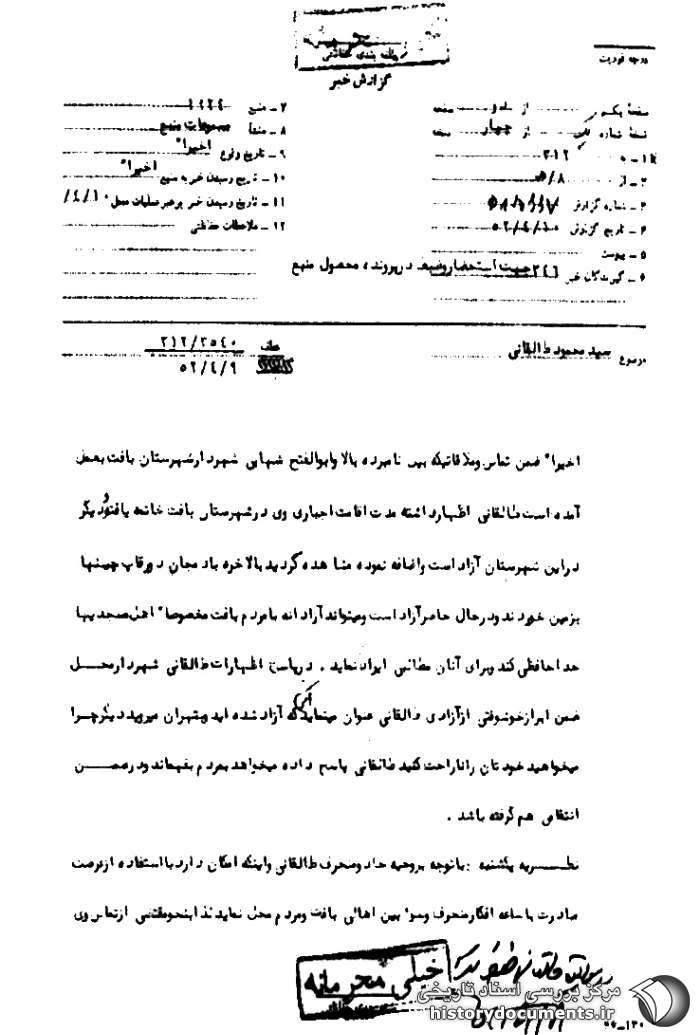 درجه فوریت
طبقه بندی حفاظتی
گزارش خبر
صفحه یکم از دو صفحه
نسخه شماره از چهار نسخه
۱ـ به ۳۱۲
۲ـ از ۵/۸
۳ـ شماره گزارش
۴ـ تاریخ گزارش ۵۲/۴/۱۰
۵ـ پیوست
۶ـ گیرندگان خبر ۳۴۱ جهت استحضار و ضبط در پرونده محصول منبع
۷ـ منبع
۸ـ منشأ مسموعات منبع
۹ـ تاریخ وقوع اخیرا"
۱۰ـ تاریخ رسیدن خبر به منبع اخیرا"
۱۱ـ تاریخ رسیدن خبر برهبر عملیات محل
۱۲ـ ملاحظات حفاظتی
موضوع سید محمود طالقانی
عطف ۳۱۲/۲۵۴۰
۵۲/۴/۹
اخیرا" ضمن تماس و ملاقاتیکه بین نامبرده بالا و ابوالفتح شهابی شهردار شهرستان بافت بعمل
آمده است طالقانی اظهار داشته مدت اقامت اجباری وی در شهرستان بافت خاتمه یافته و دیگر
در این شهرستان آزاد است و اضافه نموده مشاهده کردید بالاخره بادمجان دورقاب چینها
بزمین خوردند و در حال حاضر آزاد است و میتواند آزادانه با مردم بافت مخصوصا" اهل مسجدیها
خداحافظی کند و برای آنان مطالبی ایراد نماید . در پاسخ اظهارات طالقانی شهردار محل
ضمن ابراز خوشوقتی از آزادی طالقانی عنوان مینماید اکنون که آزاد شده اید و بتهران میروید دیگر چرا
میخواهید خودتان را ناراحت کنید طالقانی پاسخ داده میخواهد بمردم بفهماند و در ضمن
انتقامی هم گرفته باشد .
نظریه یکشنبه : با توجه بروحیه حاد و منحرف طالقانی و اینکه امکان دارد با استفاده از فرصت
مبادرت باشاعه افکار منحرف و سوء بین اهالی بافت و مردم محل نماید لذا بنحو مقتضی از تماس وی
خیلی محرمانه
مرکز بررسی اسناد تاریخی
historydocuments.ir